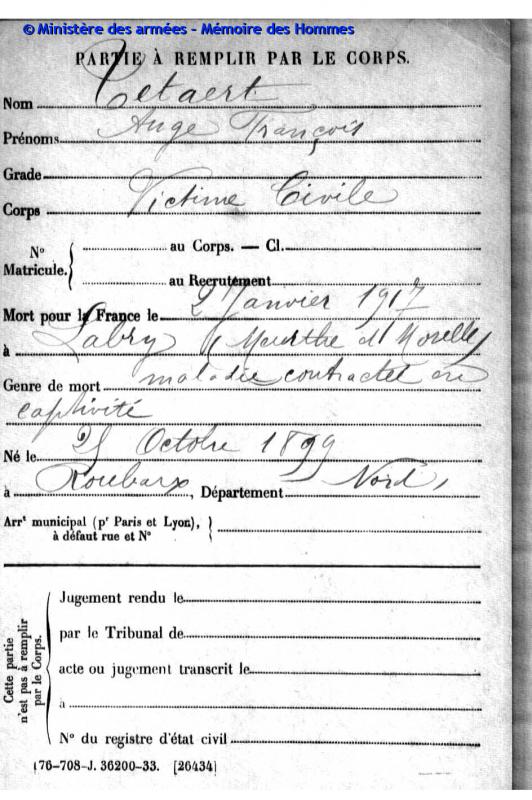 © Ministère des armées - Mémoire des Hommes
PARTIE À REMPLIR PAR LE CORPS.
Nom Cetaert
Prénoms Ange François
Grade
Corps Victime Civile
N° Matricule. { au Corps. — Cl.
au Recrutement
Mort pour la France le 2 Janvier 1917
à Labry (Meurthe et Moselle)
Genre de mort maladie contractée en
captivité
Né le 25 Octobre 1899
à Roubaix, Département Nord
Arrt municipal (pr Paris et Lyon),
à défaut rue et N°
Cette partie n'est pas à remplir par le Corps.
Jugement rendu le
par le Tribunal de
acte ou jugement transcrit le
à
N° du registre d'état civil
176-708-J. 36200-33. [26434]